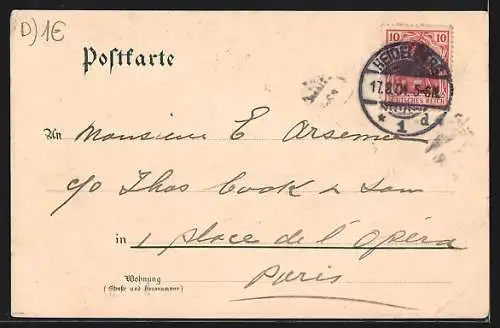 D) 1€
Postkarte
10 10
HEIDELBERG
17.8.04. 5-6N.
DEUTSCHES REICH
* 1 d *
An Monsieur E Arsema
c/o Thos Cook & Son
in 1 place de l'Opéra
Wohnung
(Straße und Hausnummer)
Paris